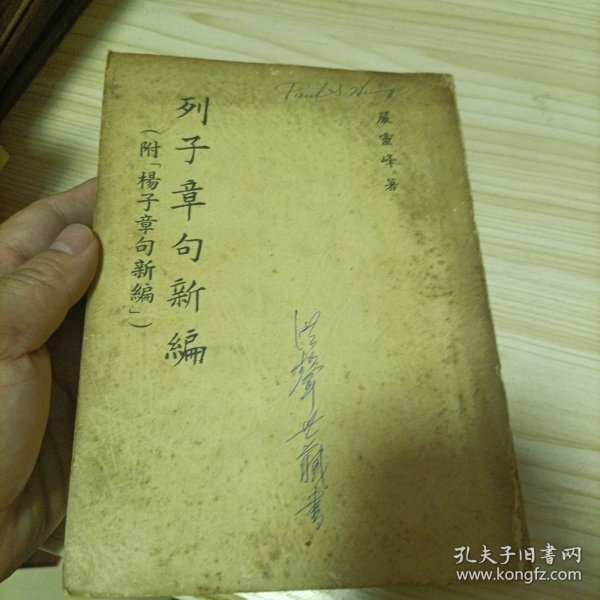 嚴靈峰著
列子章句新編
(附「楊子章句新編」)
藏書
孔夫子旧书网
www.kongfz.com